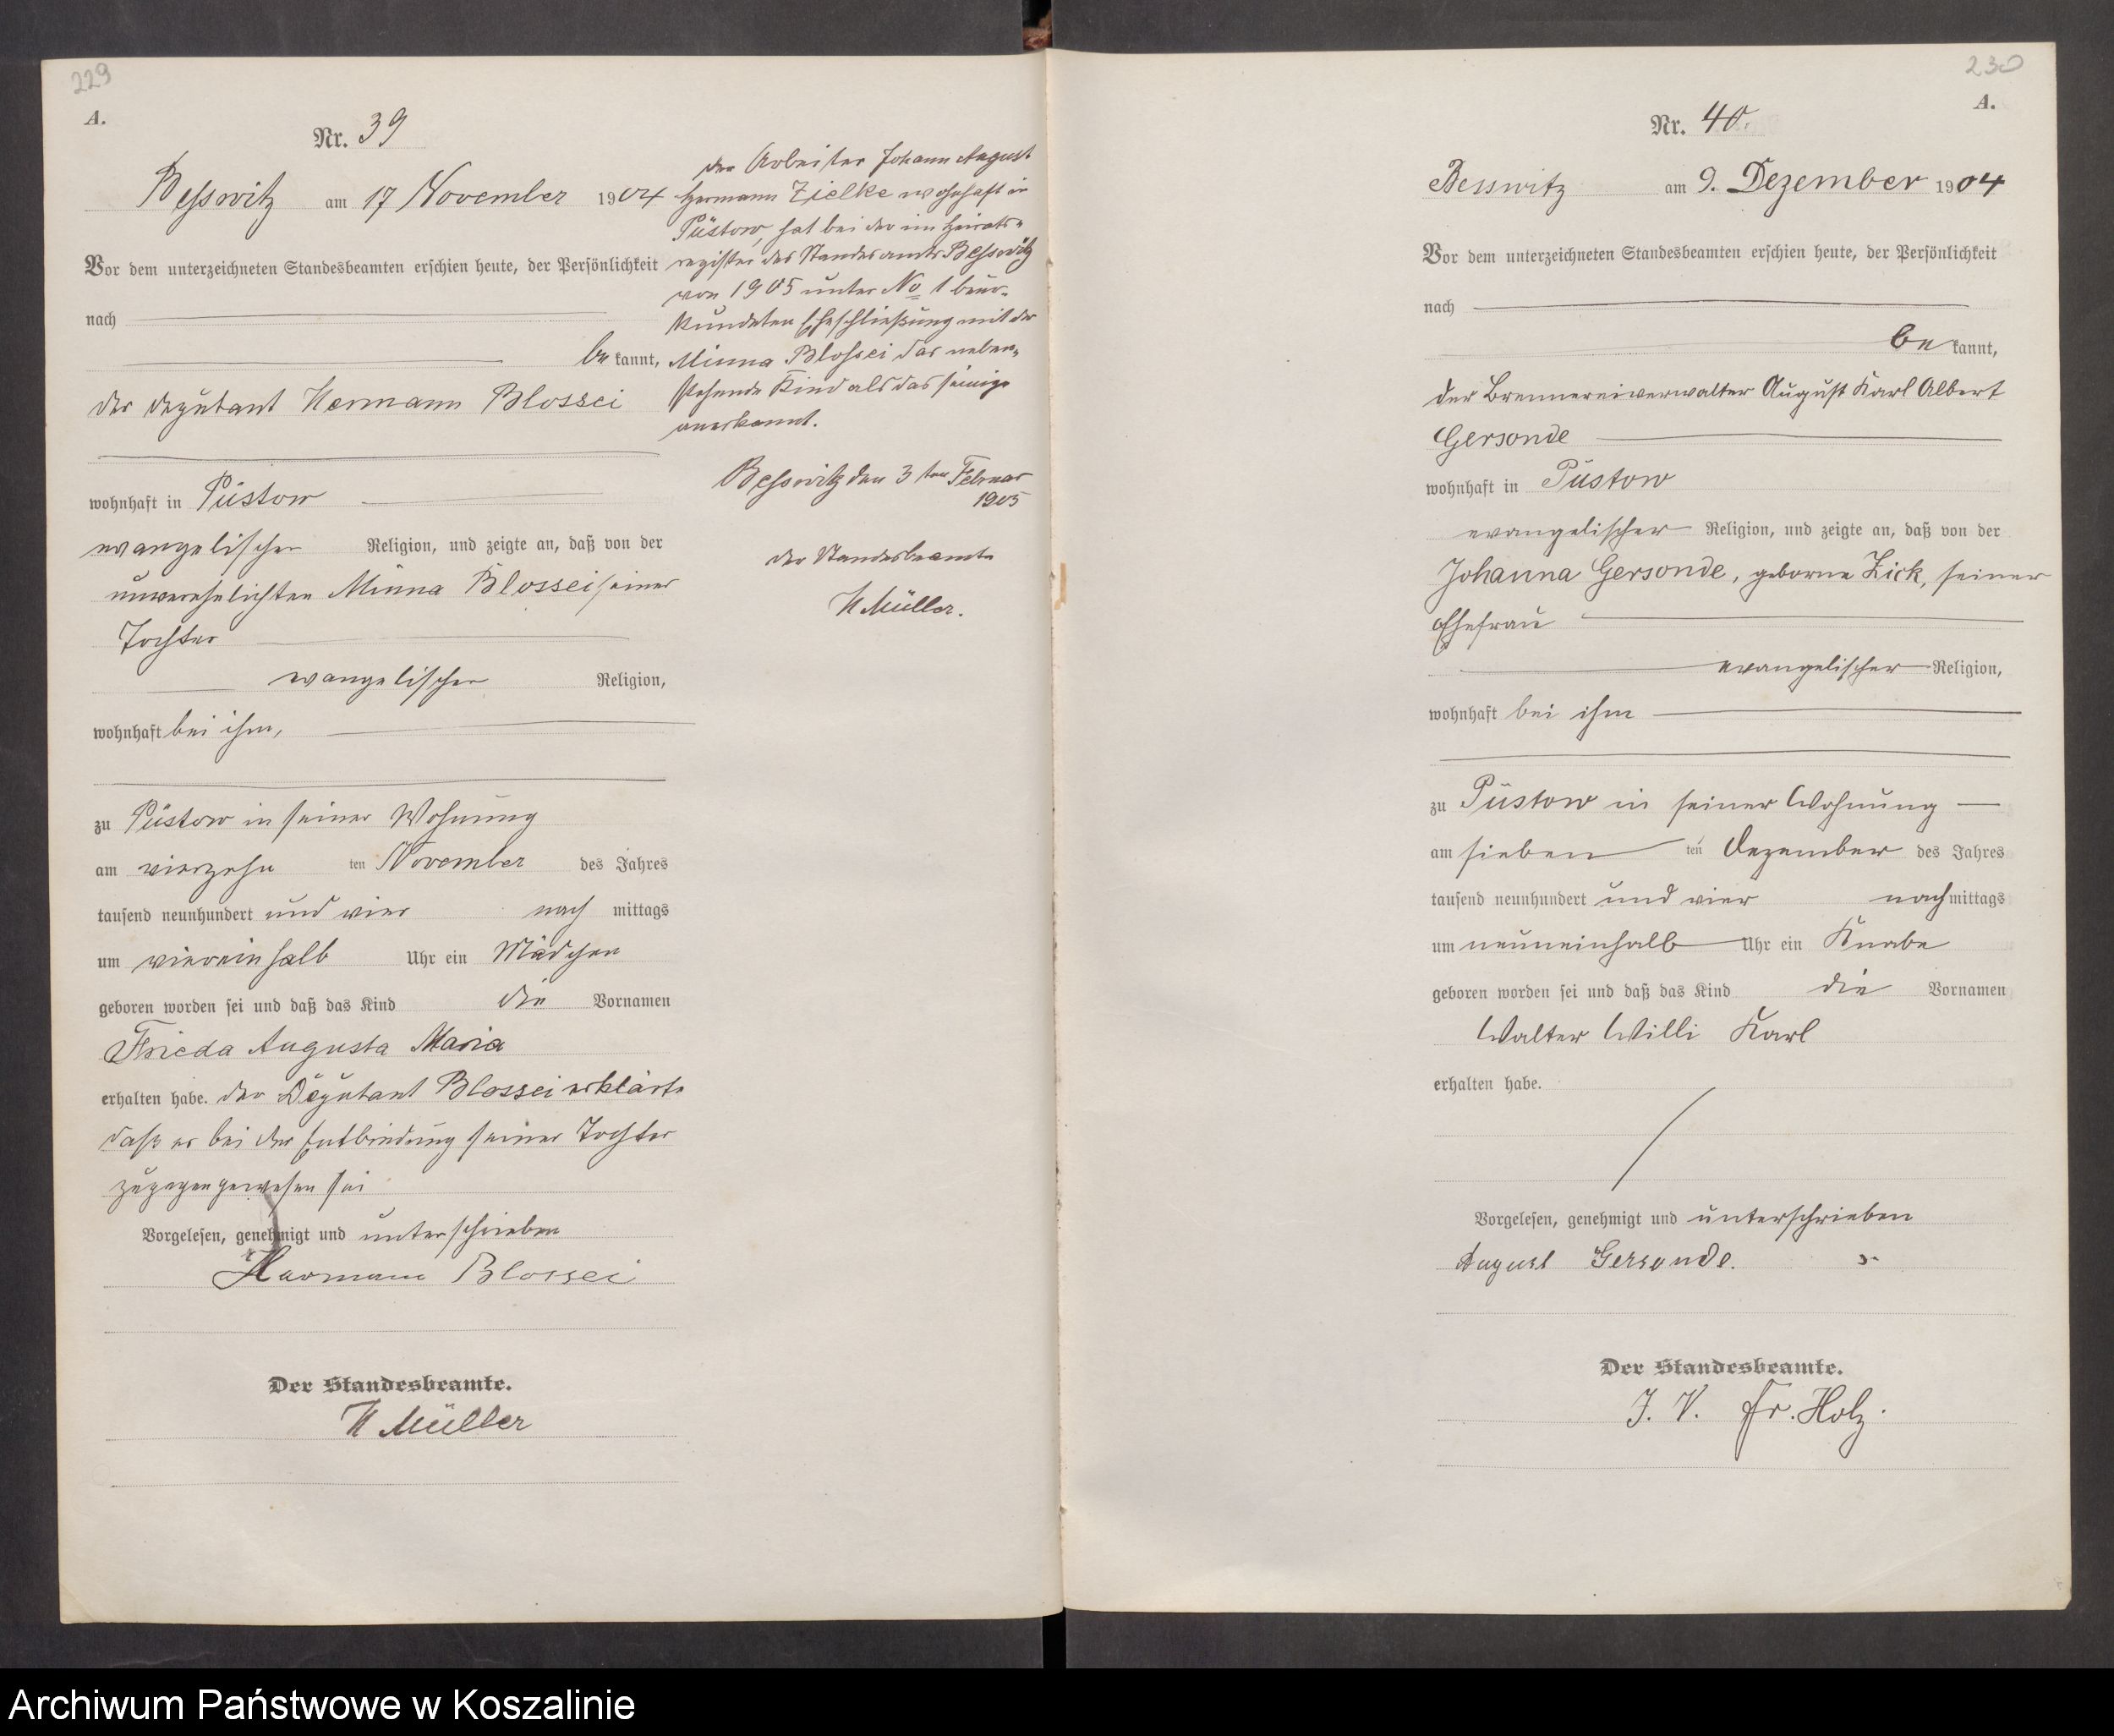 229
A.
Nr. 39
Besswitz am 17 November 1904
Vor dem unterzeichneten Standesbeamten erschien heute, der Persönlichkeit
nach
be kannt,
der Deputant Hermann Blossei
wohnhaft in Püstow
evangelischer Religion, und zeigte an, daß von der
unverehelichten Minna Blossei seiner
Tochter
evangelischer Religion,
wohnhaft bei ihm,
zu Püstow in seiner Wohnung
am vierzehn ten November des Jahres
tausend neunhundert und vier nach mittags
um viereinhalb Uhr ein Mädchen
geboren worden sei und daß das Kind die Vornamen
Frieda Augusta Maria
erhalten habe. Der Deputant Blossei erklärte
daß er bei der Entbindung seiner Tochter
zugegen gewesen sei
Vorgelesen, genehmigt und unterschrieben
Hermann Blossei
Der Standesbeamte.
H Müller
Der Arbeiter Johann August
Hermann Zielke wohnhaft in
Püstow, hat bei der im Heirats-
register des Standesamts Besswitz
von 1905 unter No 1 beur-
kundeten Eheschließung mit der
Minna Blossei das neben-
stehende Kind als das seinige
anerkannt.
Besswitz den 3ten Februar
1905
Der Standesbeamte
H Müller.
230
A.
Nr. 40.
Besswitz am 9. Dezember 1904
Vor dem unterzeichneten Standesbeamten erschien heute, der Persönlichkeit
nach
be kannt,
der Brennereiverwalter August Karl Albert
Gersonde
wohnhaft in Püstow
evangelischer Religion, und zeigte an, daß von der
Johanna Gersonde, geborne Zick, seiner
Ehefrau
evangelischer Religion,
wohnhaft bei ihm
zu Püstow in seiner Wohnung
am sieben ten Dezember des Jahres
tausend neunhundert und vier nachmittags
um neuneinhalb Uhr ein Knabe
geboren worden sei und daß das Kind die Vornamen
Walter Willi Karl
erhalten habe.
Vorgelesen, genehmigt und unterschrieben
August Gersonde.
Der Standesbeamte.
J. V. Fr. Holz.
Archiwum Państwowe w Koszalinie